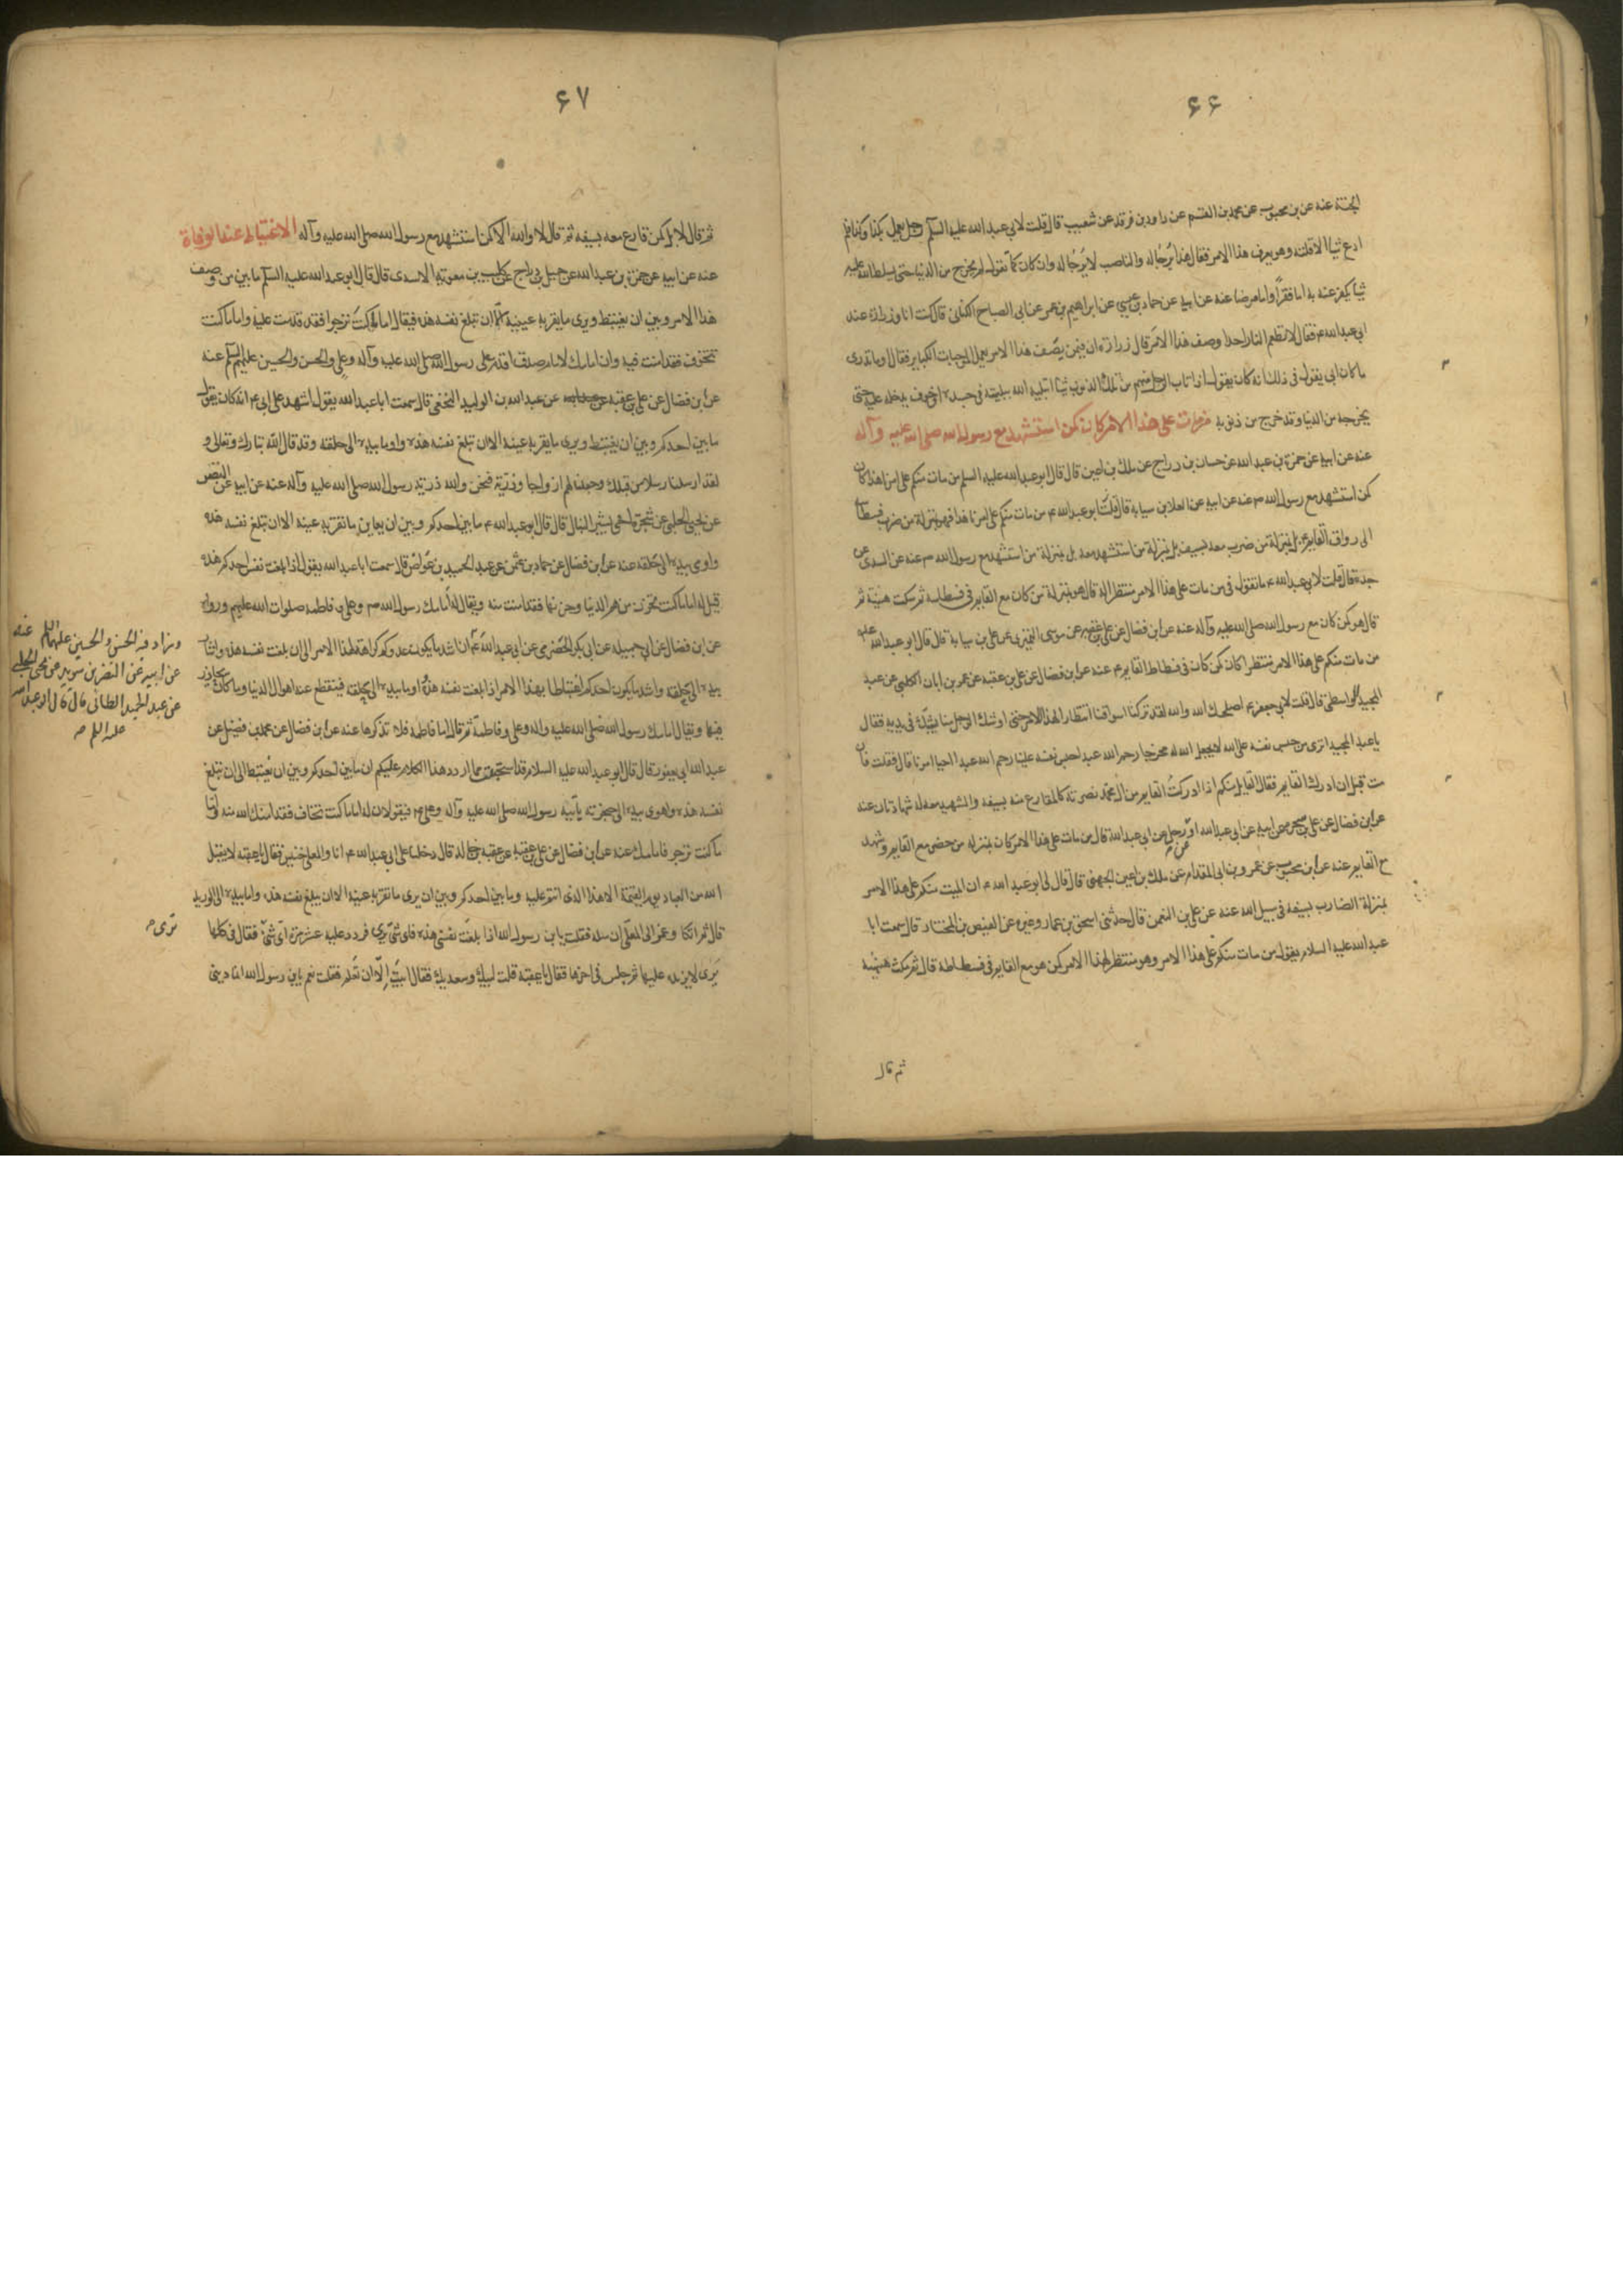 ۶۶
الجنة عنه عن بن محبوب عن محمد بن القسم عن داود بن فرقد عن شعيب قال قلت لابي عبد الله عليه السلم رجل يعمل بكذا وكذا فلم
ادع شيئا الا قلته وهو يعرف هذا الامر فقال هذا يُرجا له والناصب لا يُرجا له وان كان كما تقول لم يخرج من الدنيا حتى يسلط الله عليه
شيئا يكفر عنه به اما فقرا واما مرضا عنه عن ابيه عن حماد بن عيسى عن ابراهيم بن عمر عن ابى الصباح الكنانى قال كنت انا وزرارة عند
ابى عبد الله ع فقال لا تطعم النار احدا وصف هذا الامر قال زرارة ان فيمن يصف هذا الامر يعمل الموجبات الكباير فقال او ما تدرى
ما كان ابى يقول فى ذلك انه كان يقول اذا اصاب الرجل منهم من تلك الذنوب شيئا ابتليه الله ببليته فى جسده او خوف يدخله عليه حتى
يخرجه من الدنيا وقد خرج من ذنوبه من مات على هذا الامر كان كمن استشهد مع رسول الله صلى الله عليه وآله
عنه عن ابيه عن حمزة بن عبد الله عن حسان بن دراج عن ملك بن اعين قال قال ابو عبد الله عليه السلم من مات منكم على امرنا هذا كان
كمن استشهد مع رسول الله ص عنه عن ابيه عن العلا بن سيابه قال قال ابو عبد الله ع من مات منكم على امرنا هذا فهو بمنزلة من ضرب فسطاطه
الى رواق القايم ع بل بمنزلة من ضرب معه بسيفه بل بمنزلة من استشهد معه بل بمنزلة من استشهد مع رسول الله ص عنه عن السندى عن
جده قال قلت لابى عبد الله ع ما تقول فى من مات على هذا الامر منتظرا له قال هو بمنزلة من كان مع القايم فى فسطاطه ثم سكت هنيئة ثم
قال هو كمن كان مع رسول الله صلى الله عليه وآله عنه عن ابن فضال عن على بن عقبه عن موسى النميرى عن على بن سيابة قال قال ابو عبد الله عليه
من مات منكم على هذا الامر منتظرا كان كمن كان فى فسطاط القايم ع عنه عن ابن فضال عن على بن عقبه عن عمر بن ابان الكلبى عن عبد
المجيد الواسطى قال قلت لابى جعفر ع اصلحك الله والله لقد تركنا اسواقنا انتظارا لهذا الامر حتى اوشك الرجل منا يسئل فى يديه فقال
يا عبد المجيد اترى من حبس نفسه على الله لا يجعل الله له مخرجا رحم الله عبدا حبس نفسه علينا رحم الله عبدا احيا امرنا قال فقلت فان
مت قبل ان ادرك القايم فقال القايل منكم اذا ادركتُ القايم من ال محمد نصرته كالمقارع معه بسيفه والشهيد معه له شهادتان عنه
عن ابن فضال عن على بن شجره عن ابيه عن ابى عبد الله او عن رجل عن ابى عبد الله قال من مات على هذا الامر كان بمنزله من حضر مع القايم وشهد
مع القايم عنه عن ابن محبوب عن عمرو بن ابى المقدام عن ملك بن اعين الجهنى قال قال لى ابو عبد الله ع ان الميت منكم على هذا الامر
بمنزلة الضارب بسيفه فى سبيل الله عنه عن على بن النعمن قال حدثنى اسحق بن عمار وغيره عن الفيض بن المختار قال سمعت ابا
عبد الله عليه السلام يقول من مات منكم على هذا الامر وهو منتظر لهذا الامر كمن هو مع القايم فى فسطاطه قال ثم مكث هنيئة
ثم قال
۶۷
ثم قال لا بل كمن قارع معه بسيفه ثم قال لا والله الا كمن استشهد مع رسول الله صلى الله عليه وآله الاغتباط عند الوفاة
عنه عن ابيه عن حمزة بن عبد الله عن جميل بن دراج عن كليب بن معوية الاسدى قال قال ابو عبد الله عليه السلم ما بين من وصف
هذا الامر وبين ان يغتبط ويرى ما يقر به عينه الا ان تبلغ نفسه هذه فيقال اما ما كنتَ ترجوا فقد قدمت عليه واما ما كنت
تتخوف فقد امنت فيه وان امامك لامام صدق اقدم على رسول الله صلى الله عليه وآله وعلى والحسن والحسين عليهم السلم عنه
عن ابن فضال عن على بن عقبه عن عبد الله بن الوليد النخعى قال سمعت ابا عبد الله يقول اشهد على ابى ع انه كان يقول
ما بين احدكم وبين ان يغتبط ويرى ما يقر به عينه الا ان تبلغ نفسه هذه واوما بيده الى حلقه وقد قال الله تبارك وتعالى و
لقد ارسلنا رسلا من قبلك وجعلنا لهم ازواجا وذرية فنحن والله ذرية رسول الله صلى الله عليه وآله عنه عن ابيه عن النضر
عن يحيى الحلبى عن شجرة اخى بشير النبال قال قال ابو عبد الله ع ما بين احدكم وبين ان يعاين ما تقر به عينه الا ان تبلغ نفسه هذه
واوى بيده الى حلقه عنه عن ابن فضال عن حماد بن عثمن عن عبد الحميد بن عواض قال سمعت ابا عبد الله يقول اذا بلغت نفس احدكم هذه
قيل له اما ما كنت تحزن من هم الدنيا وحزنها فقد امنت منه ويقال له امامك رسول الله ص وعلى وفاطمه صلوات الله عليهم ورواه
عن ابن فضال عن ابى جميله عن ابى بكر الحضرمى عن ابى عبد الله ع ان اشد ما يكون عدوكم كراهة لهذا الامر الى ان بلغت نفسه هذه واشار
بيده الى حلقه واشد ما يكون احدكم اغتباطا بهذا الامر اذا بلغت نفسه هذه واوما بيده الى حلقه فينقطع عنه اهوال الدنيا وما كان يحاذر
فيها ويقال امامك رسول الله صلى الله عليه واله وعلى وفاطمة ثم قال اما فاطمه فلا تذكرها عنه عن ابن فضال عن محمد بن فضيل عن
عبد الله ابى يعفور قال قال ابو عبد الله عليه السلام قد استحييت مما اردد هذا الكلام عليكم ان ما بين احدكم وبين ان يُغتبط الى ان تبلغ
نفسه هذه واهوى بيده الى حنجرته يأتيه رسول الله صلى الله عليه وآله وعلى ع فيقولان له اما ما كنت تخاف فقد امنك الله منه واما
ما كنت ترجو فامامك عنه عن ابن فضال عن على بن عقبه عن عقبه بن خالد قال دخلنا على ابى عبد الله ع انا والمعلى بن خنيس فقال يا عقبه لا يقبل
الله من العباد يوم القيمة الا هذا الذى انتم عليه وما بين احدكم وبين ان يرى ما تقر به عينه الا ان يبلغ نفسه هذه واما بيده الى الوريد
قال ثم اتكا وغمز الى المعلى ان سله فقلت يا بن رسول الله اذا بلغت نفسى هذه فاى شئ يرى فردد عليه عشر مرة اى شئ فقال فى كلها
يَرى لا يزيد عليها ثم جلس فى اخرها فقال يا عقبة قلت لبيك وسعديك فقال ابيتَ اِلّا ان تَعلم فقلت نعم يا بن رسول الله انما دينى
وزاد فيه الحسن والحسين عليهما السلم عنه
عن ابيه عن النضر بن سويد عن يحيى الحلبى
عن عبد الحميد الطائى قال قال ابو عبد الله
عليه السلم ص
ترى